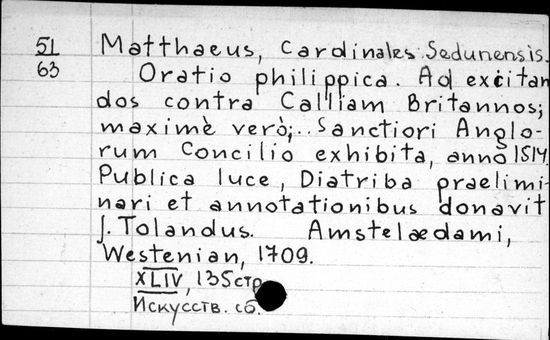 51 Matthaeus, Cardinales Sedunensis.
63 Oratio philippica. Ad excitan
dos contra Calliam Britannos;
maximè verò;.. Sanctiori Anglo-
rum Concilio exhibita, anno 1514
Publica luce, Diatriba praelimi-
nari et annotationibus donavit
J. Tolandus. Amstelædami,
Westenian, 1709.
XLIV, 135стр
Искусств. сб.